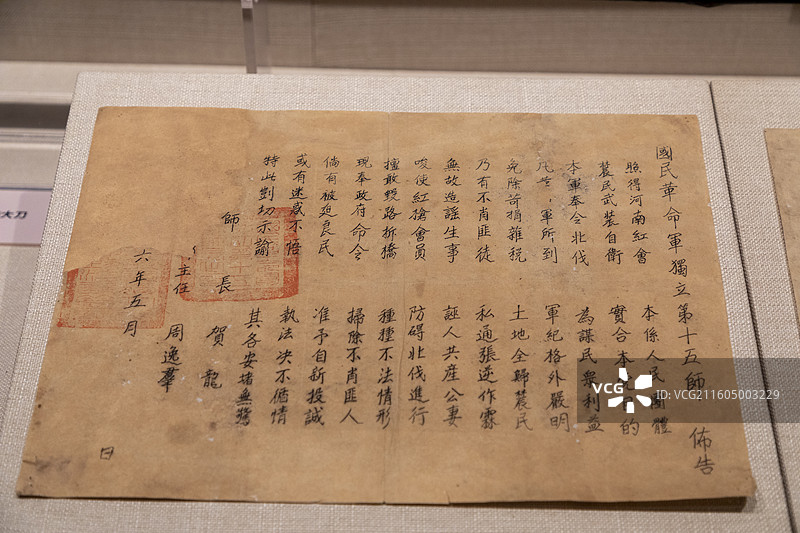 國民革命軍獨立第十五師 佈告
照得河南紅會 本係人民團體
農民武裝自衛 實合本目的
本軍奉令北伐 為謀民衆利益
凡軍所到 軍紀格外嚴明
免除苛捐雜税 土地全歸農民
乃有不肖匪徒 私通張逆作
無故造謠生事 誣人共産公妻
唆使紅搶會員 防碍北伐進行
擅敢毁路拆橋 種種不法情形
現奉政府命令 掃除不肖匪人
倘有被迫良民 准予自新投誠
或有迷惑不悟 執法决不循情
特此剴切示諭 其各安堵無驚
師 長 賀 龍
主任 周逸羣
六年五月 日
大刀
VCG
VCG211605003229